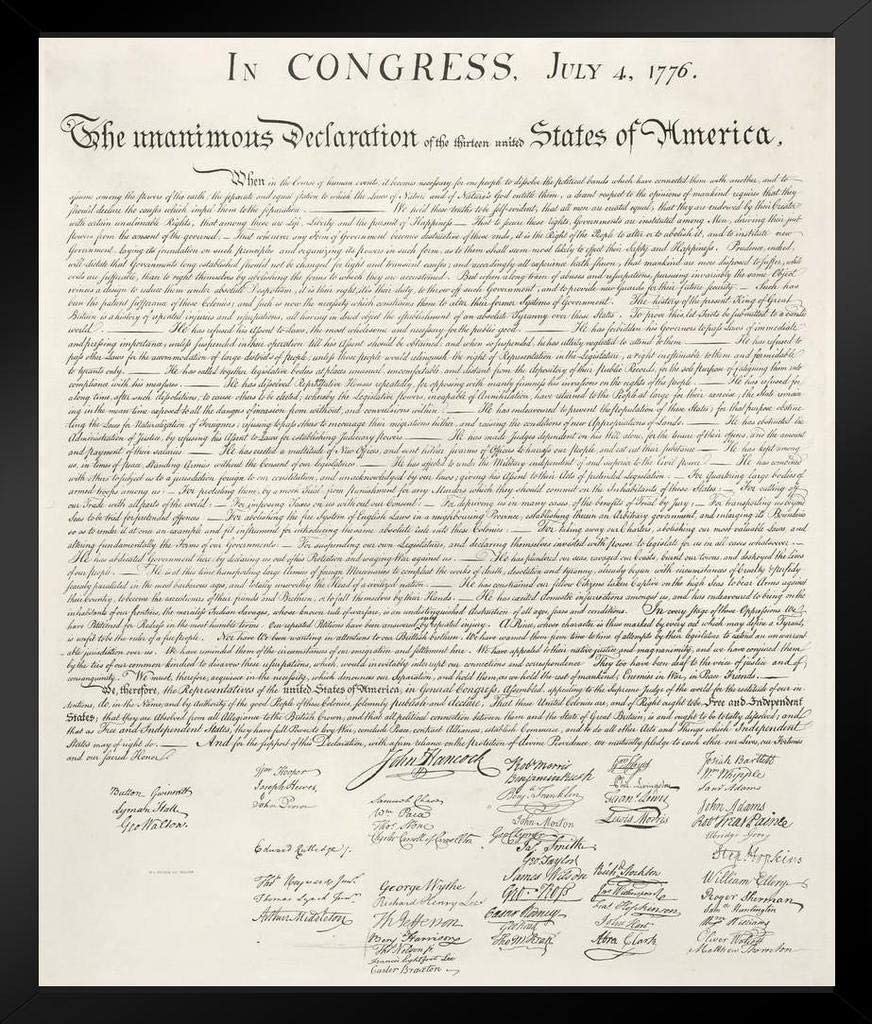 In CONGRESS, July 4, 1776.
The unanimous Declaration of the thirteen united States of America,
When in the Course of human events, it becomes necessary for one people to dissolve the political bands which have connected them with another, and to
assume among the powers of the earth, the separate and equal station to which the Laws of Nature and of Nature's God entitle them, a decent respect to the opinions of mankind requires that they
should declare the causes which impel them to the separation. We hold these truths to be self-evident, that all men are created equal, that they are endowed by their Creator
with certain unalienable Rights, that among these are Life, Liberty and the pursuit of Happiness.— That to secure these rights, Governments are instituted among Men, deriving their just
powers from the consent of the governed,— That whenever any Form of Government becomes destructive of these ends, it is the Right of the People to alter or to abolish it, and to institute new
Government, laying its foundation on such principles and organizing its powers in such form, as to them shall seem most likely to effect their Safety and Happiness. Prudence, indeed,
will dictate that Governments long established should not be changed for light and transient causes; and accordingly all experience hath shewn, that mankind are more disposed to suffer, while
evils are sufferable, than to right themselves by abolishing the forms to which they are accustomed. But when a long train of abuses and usurpations, pursuing invariably the same Object
evinces a design to reduce them under absolute Despotism, it is their right, it is their duty, to throw off such Government, and to provide new Guards for their future security.— Such has
been the patient sufferance of these Colonies; and such is now the necessity which constrains them to alter their former Systems of Government. The history of the present King of Great
Britain is a history of repeated injuries and usurpations, all having in direct object the establishment of an absolute Tyranny over these States. To prove this, let Facts be submitted to a candid
world. He has refused his Assent to Laws, the most wholesome and necessary for the public good. He has forbidden his Governors to pass Laws of immediate
and pressing importance, unless suspended in their operation till his Assent should be obtained; and when so suspended, he has utterly neglected to attend to them. He has refused to
pass other Laws for the accommodation of large districts of people, unless those people would relinquish the right of Representation in the Legislature, a right inestimable to them and formidable
to tyrants only. He has called together legislative bodies at places unusual, uncomfortable, and distant from the depository of their Public Records, for the sole purpose of fatiguing them into
compliance with his measures. He has dissolved Representative Houses repeatedly, for opposing with manly firmness his invasions on the rights of the people. He has refused for
a long time, after such dissolutions, to cause others to be elected; whereby the Legislative powers, incapable of Annihilation, have returned to the People at large for their exercise; the State remain-
ing in the mean time exposed to all the dangers of invasion from without, and convulsions within. He has endeavoured to prevent the population of these States; for that purpose obstruc-
ting the Laws for Naturalization of Foreigners; refusing to pass others to encourage their migrations hither, and raising the conditions of new Appropriations of Lands. He has obstructed the
Administration of Justice, by refusing his Assent to Laws for establishing Judiciary powers. He has made Judges dependent on his Will alone, for the tenure of their offices, and the amount
and payment of their salaries. He has erected a multitude of New Offices, and sent hither swarms of Officers to harrass our people, and eat out their substance. He has kept among
us, in times of peace, Standing Armies without the Consent of our legislatures. He has affected to render the Military independent of and superior to the Civil power. He has combined
with others to subject us to a jurisdiction foreign to our constitution, and unacknowledged by our laws; giving his Assent to their Acts of pretended Legislation:— For Quartering large bodies of
armed troops among us:— For protecting them, by a mock Trial, from punishment for any Murders which they should commit on the Inhabitants of these States:— For cutting off
our Trade with all parts of the world:— For imposing Taxes on us without our Consent:— For depriving us in many cases, of the benefits of Trial by Jury:— For transporting us beyond
Seas to be tried for pretended offences— For abolishing the free System of English Laws in a neighbouring Province, establishing therein an Arbitrary government, and enlarging its Boundaries
so as to render it at once an example and fit instrument for introducing the same absolute rule into these Colonies:— For taking away our Charters, abolishing our most valuable Laws, and
altering fundamentally the Forms of our Governments:— For suspending our own Legislatures, and declaring themselves invested with power to legislate for us in all cases whatsoever.—
He has abdicated Government here, by declaring us out of his Protection and waging War against us.— He has plundered our seas, ravaged our Coasts, burnt our towns, and destroyed the lives
of our people.— He is at this time transporting large Armies of foreign Mercenaries to compleat the works of death, desolation and tyranny, already begun with circumstances of Cruelty & perfidy
scarcely paralleled in the most barbarous ages, and totally unworthy the Head of a civilized nation.— He has constrained our fellow Citizens taken Captive on the high Seas to bear Arms against
their Country, to become the executioners of their friends and Brethren, or to fall themselves by their Hands.— He has excited domestic insurrections amongst us, and has endeavoured to bring on the
inhabitants of our frontiers, the merciless Indian Savages, whose known rule of warfare, is an undistinguished destruction of all ages, sexes and conditions. In every stage of these Oppressions We
have Petitioned for Redress in the most humble terms: Our repeated Petitions have been answered only by repeated injury. A Prince, whose character is thus marked by every act which may define a Tyrant,
is unfit to be the ruler of a free people. Nor have We been wanting in attentions to our Brittish brethren. We have warned them from time to time of attempts by their legislature to extend an unwarrant-
able jurisdiction over us. We have reminded them of the circumstances of our emigration and settlement here. We have appealed to their native justice and magnanimity, and we have conjured them
by the ties of our common kindred to disavow these usurpations, which, would inevitably interrupt our connections and correspondence. They too have been deaf to the voice of justice and of
consanguinity. We must, therefore, acquiesce in the necessity, which denounces our Separation, and hold them, as we hold the rest of mankind, Enemies in War, in Peace Friends.—
We, therefore, the Representatives of the united States of America, in General Congress, Assembled, appealing to the Supreme Judge of the world for the rectitude of our in-
tentions, do, in the Name, and by Authority of the good People of these Colonies, solemnly publish and declare, That these United Colonies are, and of Right ought to be Free and Independent
States; that they are Absolved from all Allegiance to the British Crown, and that all political connection between them and the State of Great Britain, is and ought to be totally dissolved; and
that as Free and Independent States, they have full Power to levy War, conclude Peace, contract Alliances, establish Commerce, and to do all other Acts and Things which Independent
States may of right do.— And for the support of this Declaration, with a firm reliance on the Protection of divine Providence, we mutually pledge to each other our Lives, our Fortunes
and our sacred Honor.
Button Gwinnett
Lyman Hall
Geo Walton.
Wm Hooper
Joseph Hewes,
John Penn
Edward Rutledge
Thos Heyward Junr.
Thomas Lynch Junr.
Arthur Middleton
John Hancock
Samuel Chase
Wm Paca
Thos Stone
Charles Carroll of Carrollton
George Wythe
Richard Henry Lee
Th Jefferson
Benj Harrison
Thos Nelson jr
Francis Lightfoot Lee
Carter Braxton
Robt Morris
Benjamin Rush
Benj Franklin
John Morton
Geo Clymer
Jas Smith
Geo Taylor
James Wilson
Geo Ross
Caesar Rodney
Geo Read
Tho M:Kean
Wm Floyd
Phil Livingston
Frans Lewis
Lewis Morris
Richd Stockton
Jno Witherspoon
Fras Hopkinson
John Hart
Abra Clark
Josiah Bartlett
Wm Whipple
Saml Adams
John Adams
Robt Treat Paine
Elbridge Gerry
Step Hopkins
William Ellery
Roger Sherman
Saml Huntington
Wm Williams
Oliver Wolcott
Matthew Thornton